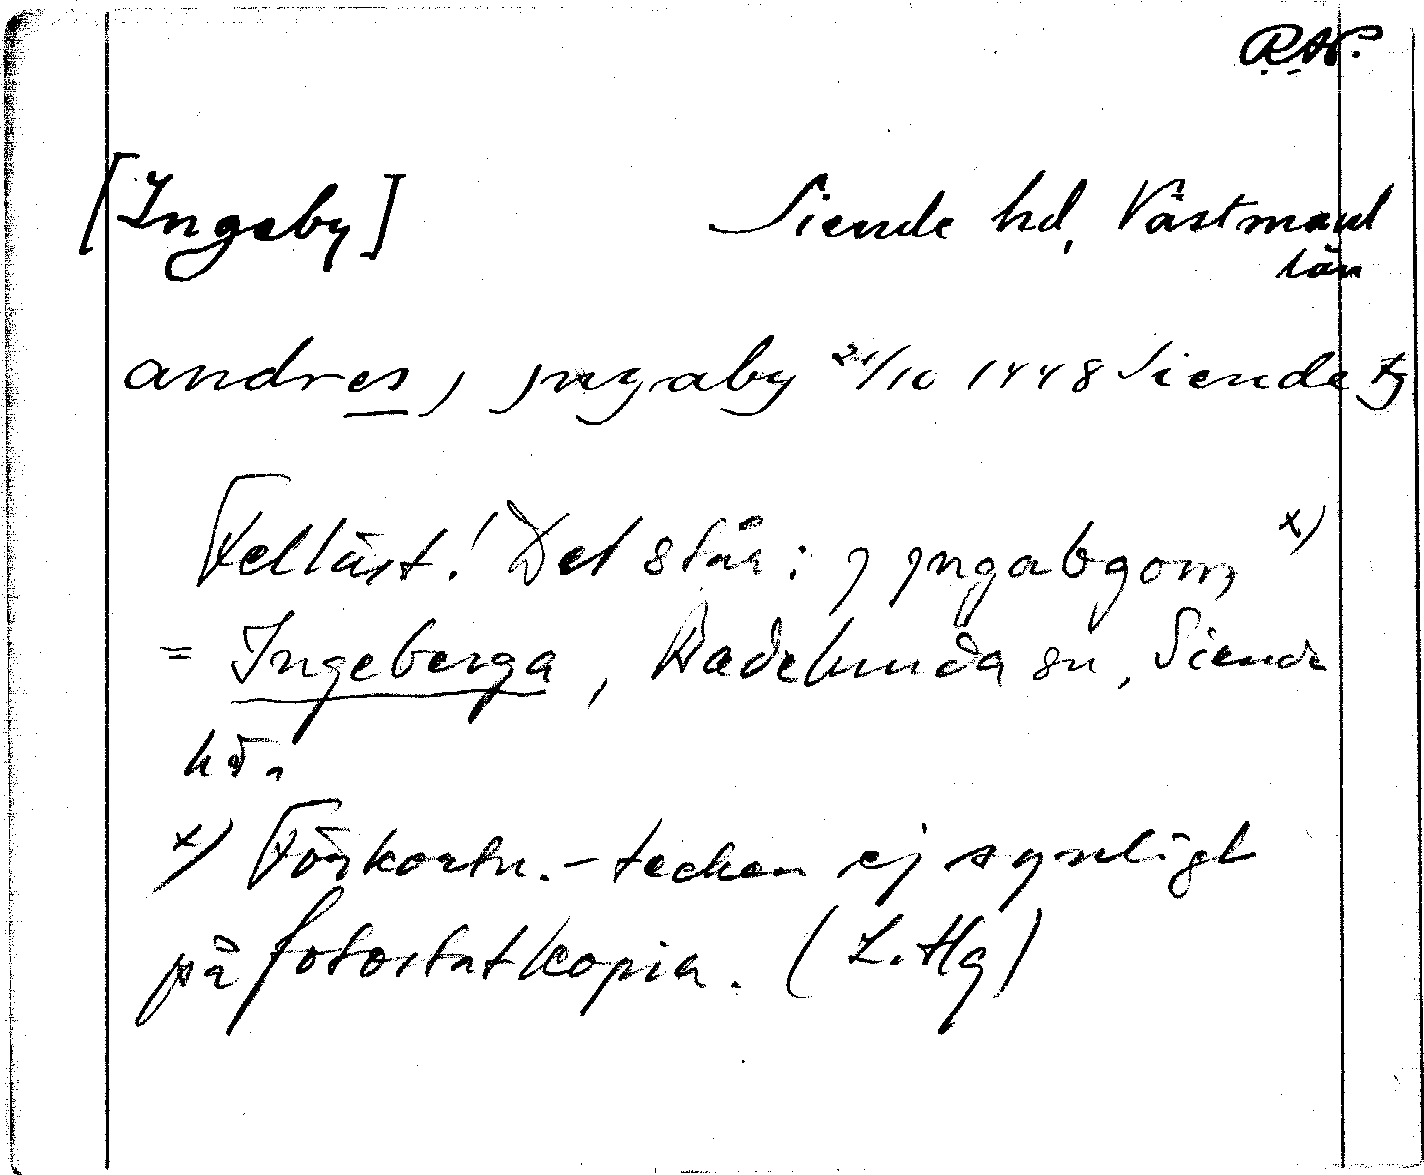 [Ingeby] Siende hd, Västmanl
län
andres j jngaby 21/10 1448 Siende tg
Felläst! Det står: j jngabgom x)
= Ingeberga, Badelunda sn, Siende
hd.
x) Förkortn.-tecken ej synligt
på fotostatkopia. (L. Hg)